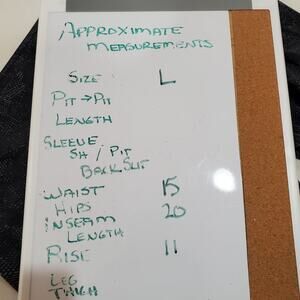 APPROXIMATE
MEASUREMENTS
SIZE L
PIT → PIT
LENGTH
SLEEVE
SH / PIT
BACK SLIT
WAIST 15
HIPS 20
INSEAM
LENGTH
RISE 11
LEG
THIGH